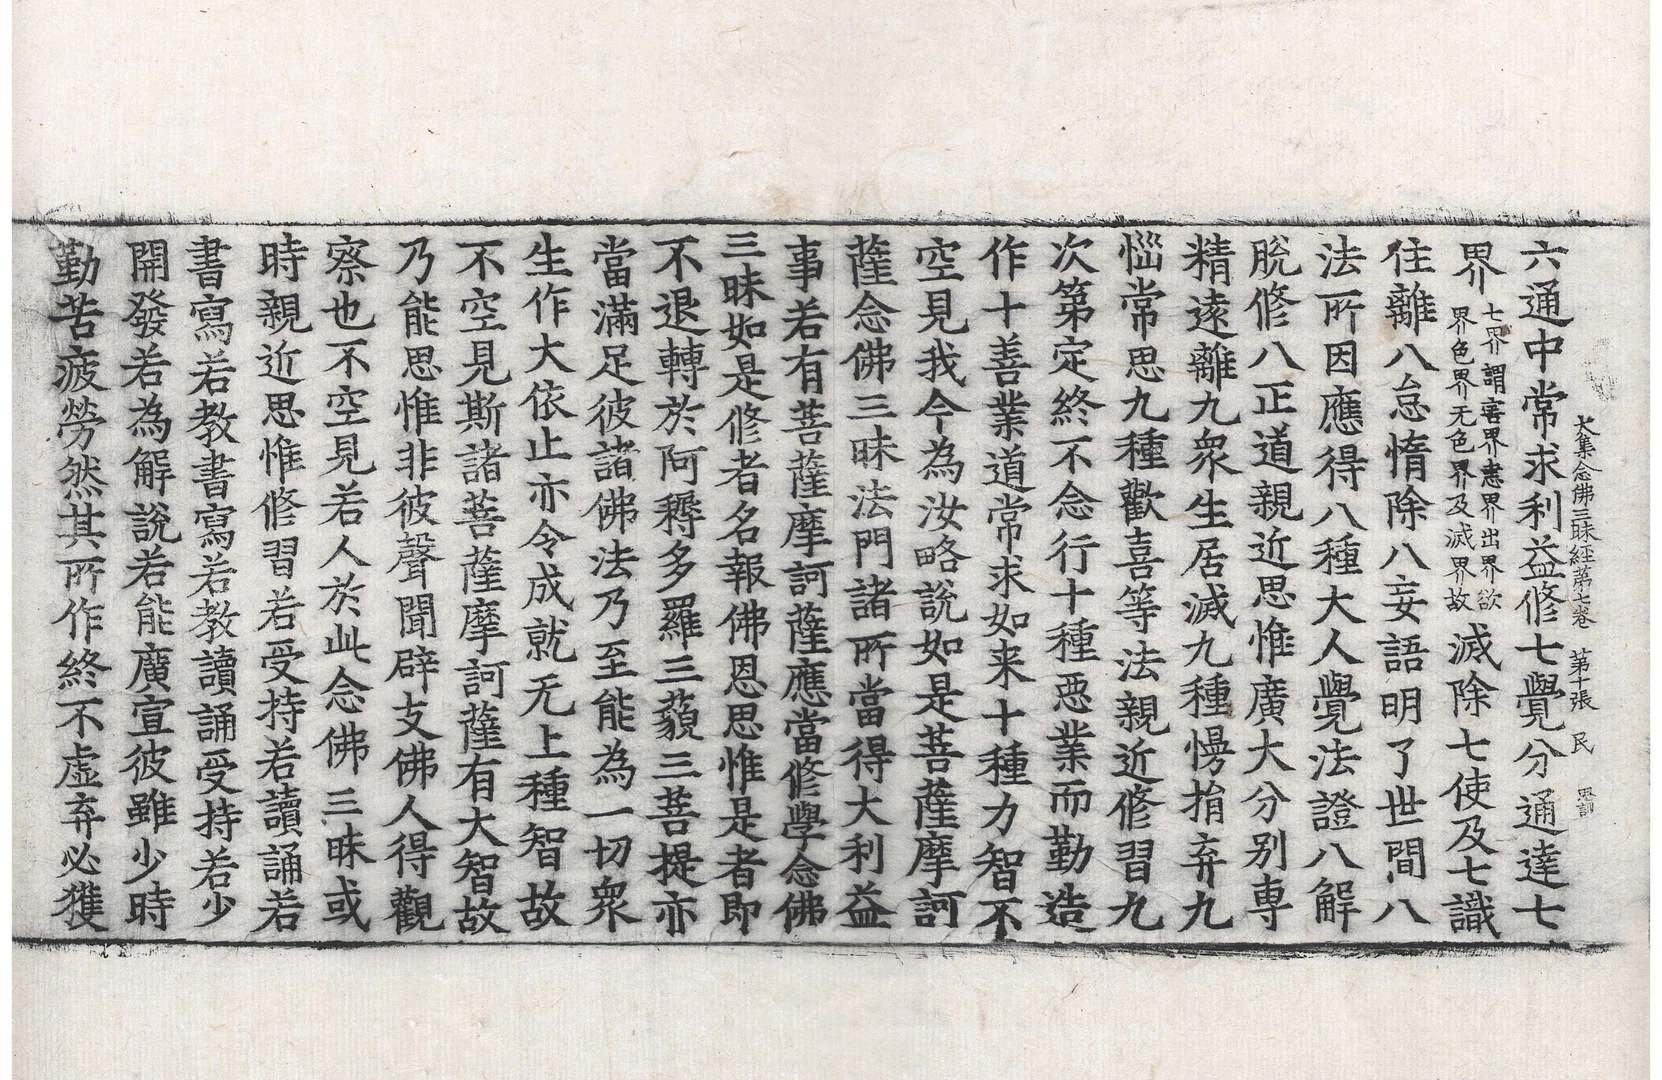 大集念佛三昧經第七卷 第十張 民
六通中常求利益修七覺分通達七
界
七界謂害界恚界出界欲
界色界无色界及滅界故
滅除七使及七識
住離八怠惰除八妄語明了世間八
法所因應得八種大人覺法證八解
脫修八正道親近思惟廣大分別專
精遠離九衆生居滅九種慢捐弃九
惱常思九種歡喜等法親近修習九
次第定終不念行十種惡業而勤造
作十善業道常求如来十種力智不
空見我今為汝略說如是菩薩摩訶
薩念佛三昧法門諸所當得大利益
事若有菩薩摩訶薩應當修學念佛
三昧如是修者名報佛恩思惟是者即
不退轉於阿耨多羅三藐三菩提亦
當滿足彼諸佛法乃至能為一切衆
生作大依止亦令成就无上種智故
不空見斯諸菩薩摩訶薩有大智故
乃能思惟非彼聲聞辟支佛人得觀
察也不空見若人於此念佛三昧或
時親近思惟修習若受持若讀誦若
書寫若教書寫若教讀誦受持若少
開發若為解說若能廣宣彼雖少時
勤苦疲勞然其所作終不虛弃必獲